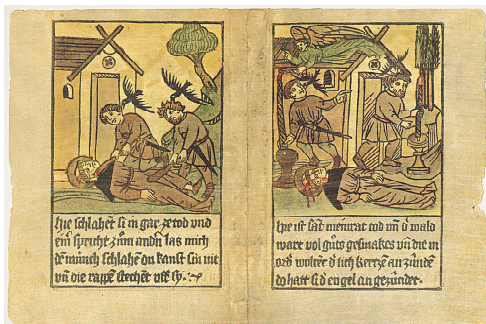 Hie schlahet si in gar zetod und
eim spricht zum andn las mich
dē münch schlahē du kanst sin nit
vn̄ die rappē stechēt
Hie ist sāt meinrat tod vn̄ d wald
ware vol gůts gesmakes vn̄ die in
woltēt d sich kertzē an zündē
do hatt si d engel an gezündet.